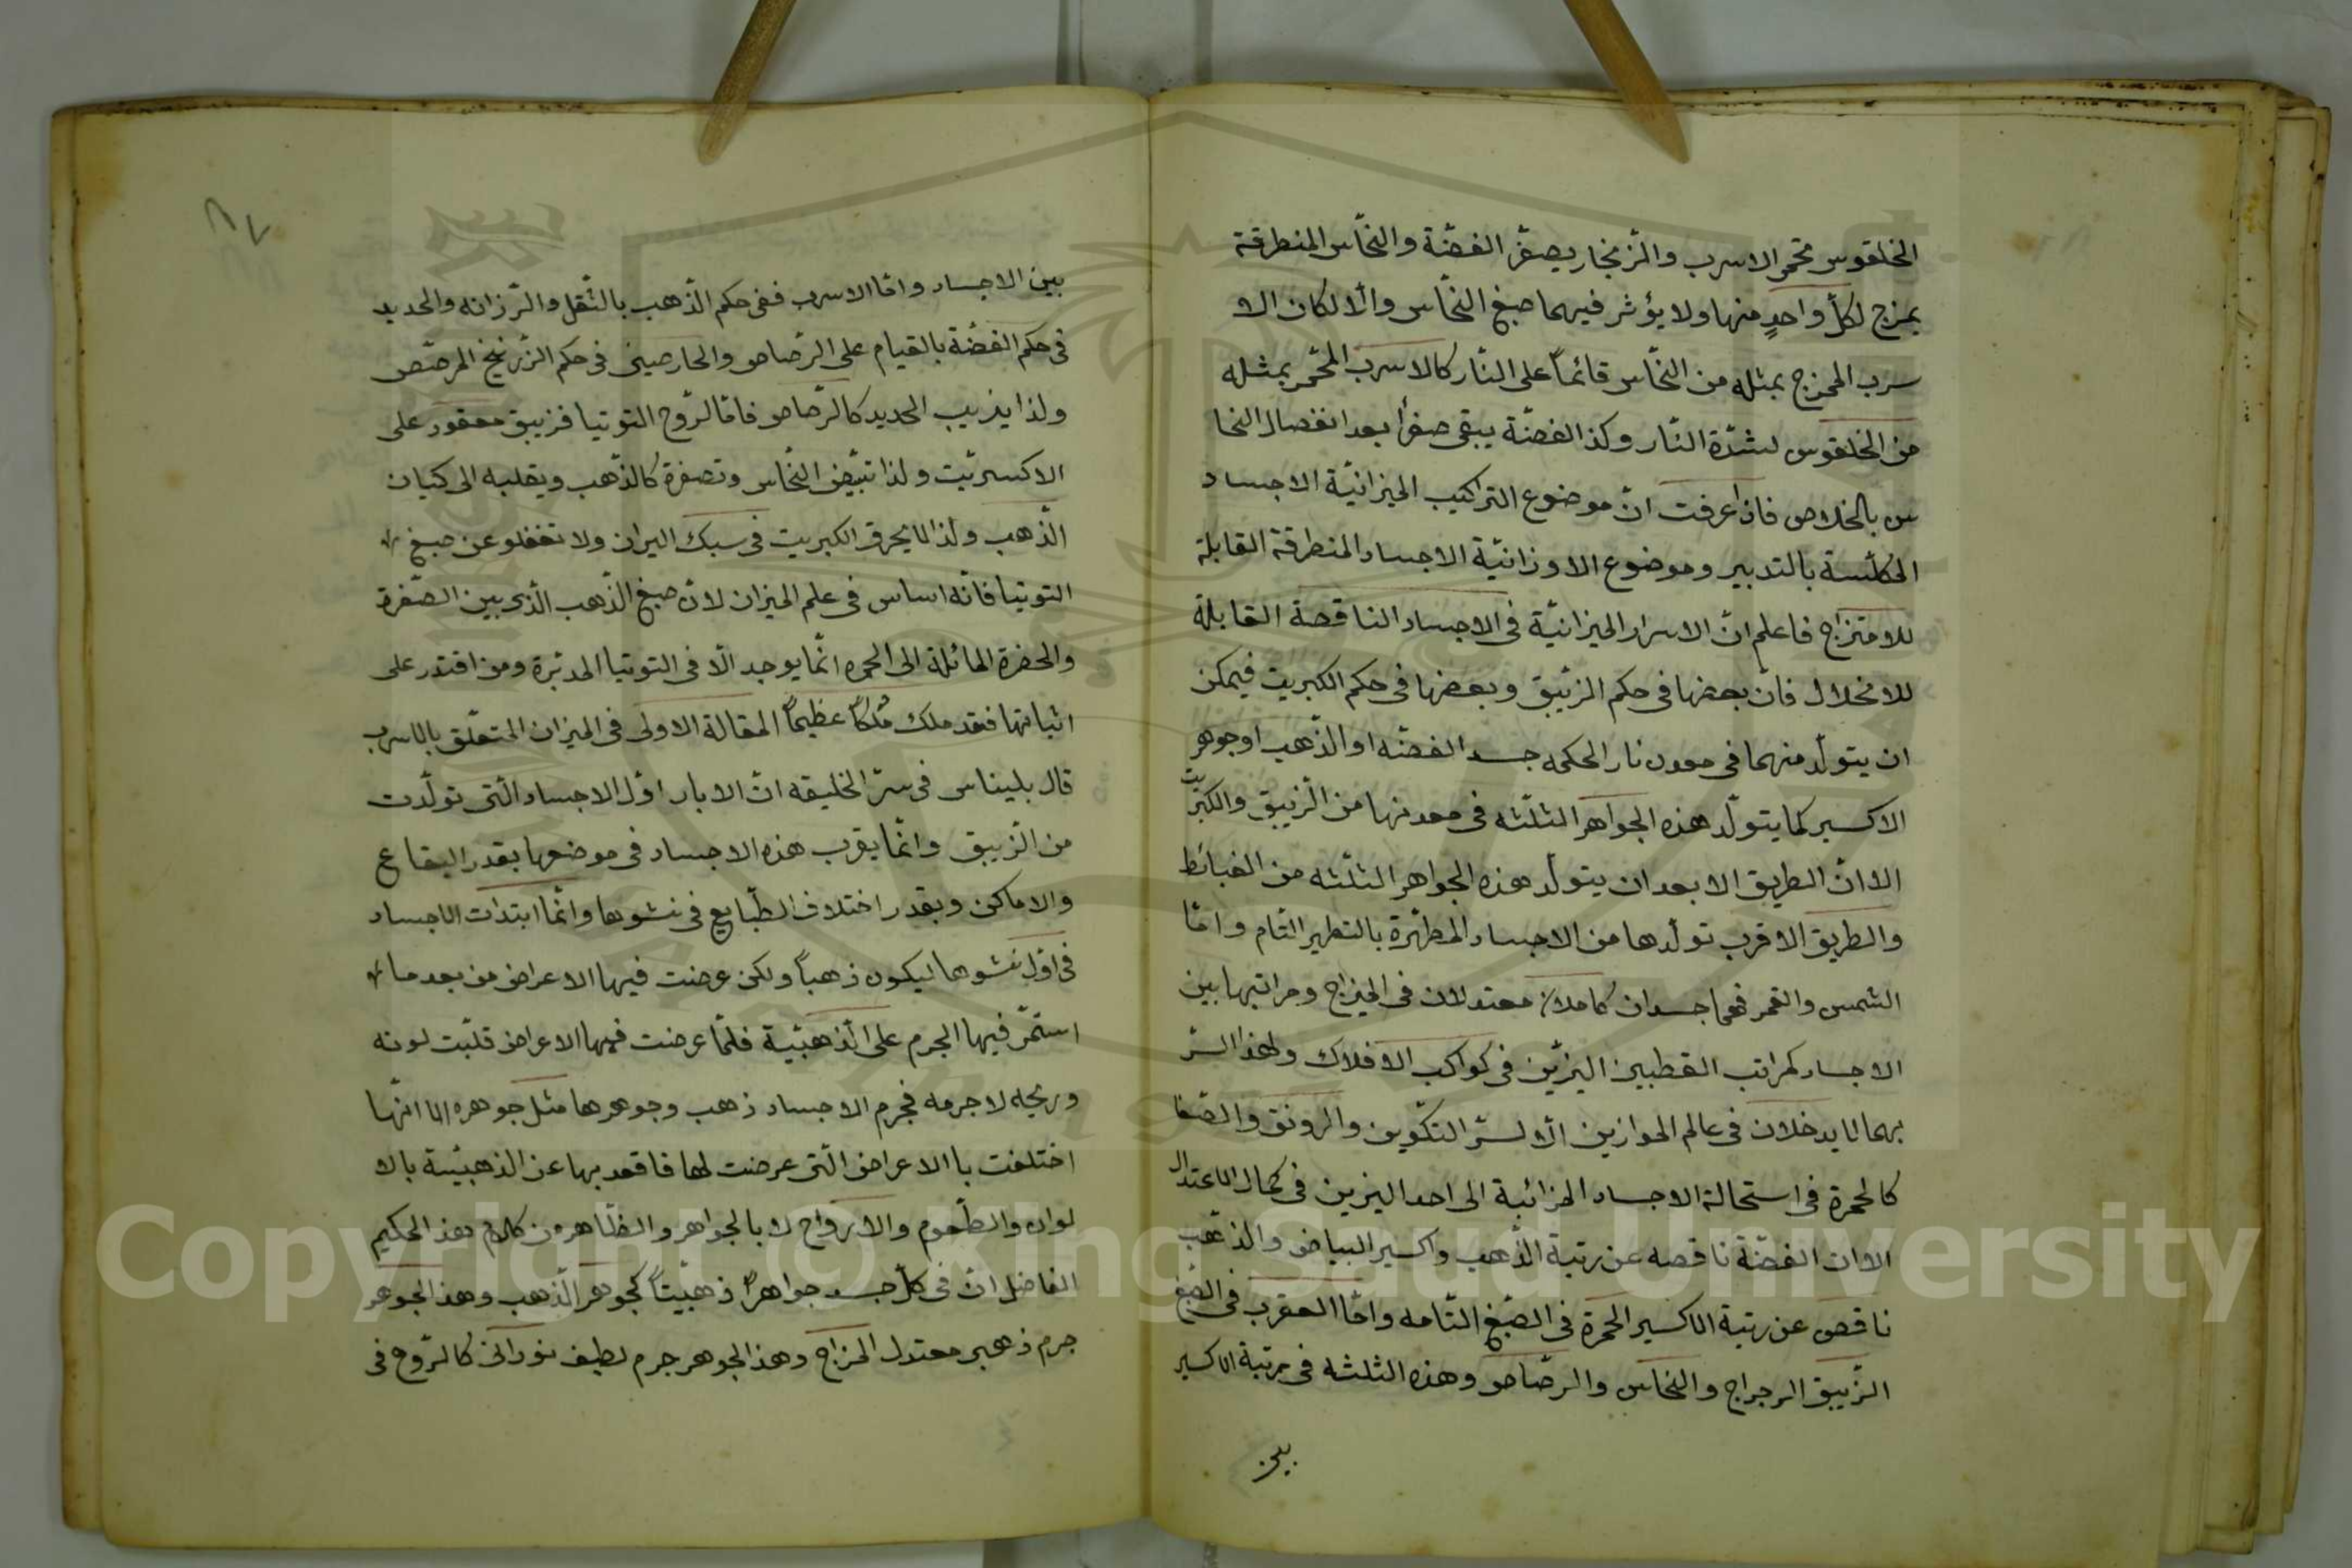 الخلقوس محمّر الاسرب والزّنجار يصفّر الفضّة والنحّاس المنطرقة
يمزج لكلّ واحدٍ منها ولا يؤثر فيهما صبغ النحّاس والّا لكان الا
سرب الممزج بمثله من النحّاس قائماً على النّار كالاسرب المحمّر بمثله
من الخلقوس لشدّة النّار وكذا الفضّة يبقى صفراً بعد انفصال النحا
س بالخلاص فاذا عرفت انّ موضوع التراكيب الميزانيّة الاجساد
المكلّسة بالتدبير وموضوع الاوزانيّة الاجساد المنطرقة القابلة
للامتزاج فاعلم انّ الاسرار الميزانيّة فى الاجساد الناقصة القابلة
للانحلال فانّ بعضها فى حكم الزئيبق وبعضها فى حكم الكبريت فيمكن
ان يتولّد منهما فى معدن نار الحكمه جسد الفضّه او الذّهب او جوهر
الاكسير كما يتولّد هذه الجواهر الثلثه فى معدنها من الزّيبق والكبريت
الا انّ الطريق الابعد ان يتولّد هذه الجواهر الثلثه من الغبائط
والطريق الاقرب تولّدها من الاجساد المطهّرة بالتطهير التّام وامّا
الشمس والقمر فهما جسدان كاملان معتدلان فى الميزاج ومراتبها بين
الاجساد كمراتب القطبين النيرّين فى كواكب الافلاك ولهذا السّر
بهما لا يدخلان فى عالم الموازين الّا لسرّ التكوين والرونق والصّفا
كالحمرة فى استحالة الاجساد المزائبة الى احد النيرين فى كمال الاعتدال
الا ان الفضّة ناقصه عن رتبة الذّهب واكسير البياض والذّهب
ناقص عن رتبة الاكسير الحمرة فى الصّبغ التّامه وامّا العقرب فى الصّبغ
الزّيبق الرجراج والنحاس والرصّاص وهذه الثلثه فى مرتبة الاكسير
بين
٨٧
بين الاجساد وامّا الاسرب ففى حكم الذّهب بالثّقل والرّزانه والحديد
فى حكم الفضّة بالقيام على الرّصاص والخارصينى فى حكم الزّرنيخ المرصّص
ولذا يذيب الحديد كالرّصاص فامّا لروح التوتيا فزيبق معقود على
الاكسريّت ولذا تبيّض النحّاس وتصفرة كالذّهب ويقلبه الى كيان
الذّهب ولذا لا يحرق الكبريت فى سبك النيران ولا تغفلو عن صبغ
التوتيا فانّه اساس فى علم الميزان لانّ صبغ الذّهب الّذى بين الصّفرة
والخضرة المائلة الى الحمره انّما يوجد الّا فى التوتيا المدبّرة ومن اقتدر على
اثباتها فقد ملك مُلكاً عظيماً المقالة الاولى فى الميزان المتعلّق بالاسرب
قال بليناس فى سّر الخليقه انّ الابار اوّل الاجساد الّتى تولّدت
من الزّيبق وانّما يقرب هذه الاجساد فى موضعها بقدر البقاع
والاماكن وبقدر اختلاف الطّبايع فى نشوها وانّما ابتدات الاجساد
فى اوّل نشوها ليكون ذهباً ولكن عرضت فيها الاعراض من بعد ما
استمّر فيها الجرم على الذّهبيّية فلمّا عرضت فيها الاعراض قلبّت لونه
وريحه لا جرمه فجرم الاجساد ذهب وجوهرها مثل جوهره الا انّها
اختلفت با الاعراض الّتى عرضت لها فاقعد بها عن الذهبيّية بالا
لوان والطّعوم والارواح لا بالجواهر والظّاهر من كلام هذ الحكيم
الفاضل انّ فى كلّ جسد جواهراً ذهبيّتاً كجوهر الذّهب وهذ الجوهر
جرم ذهبى معتدل المزاج وهذ الجوهر جرم لطيف نورانى كالرّوح فى
Copyright © King Saud University